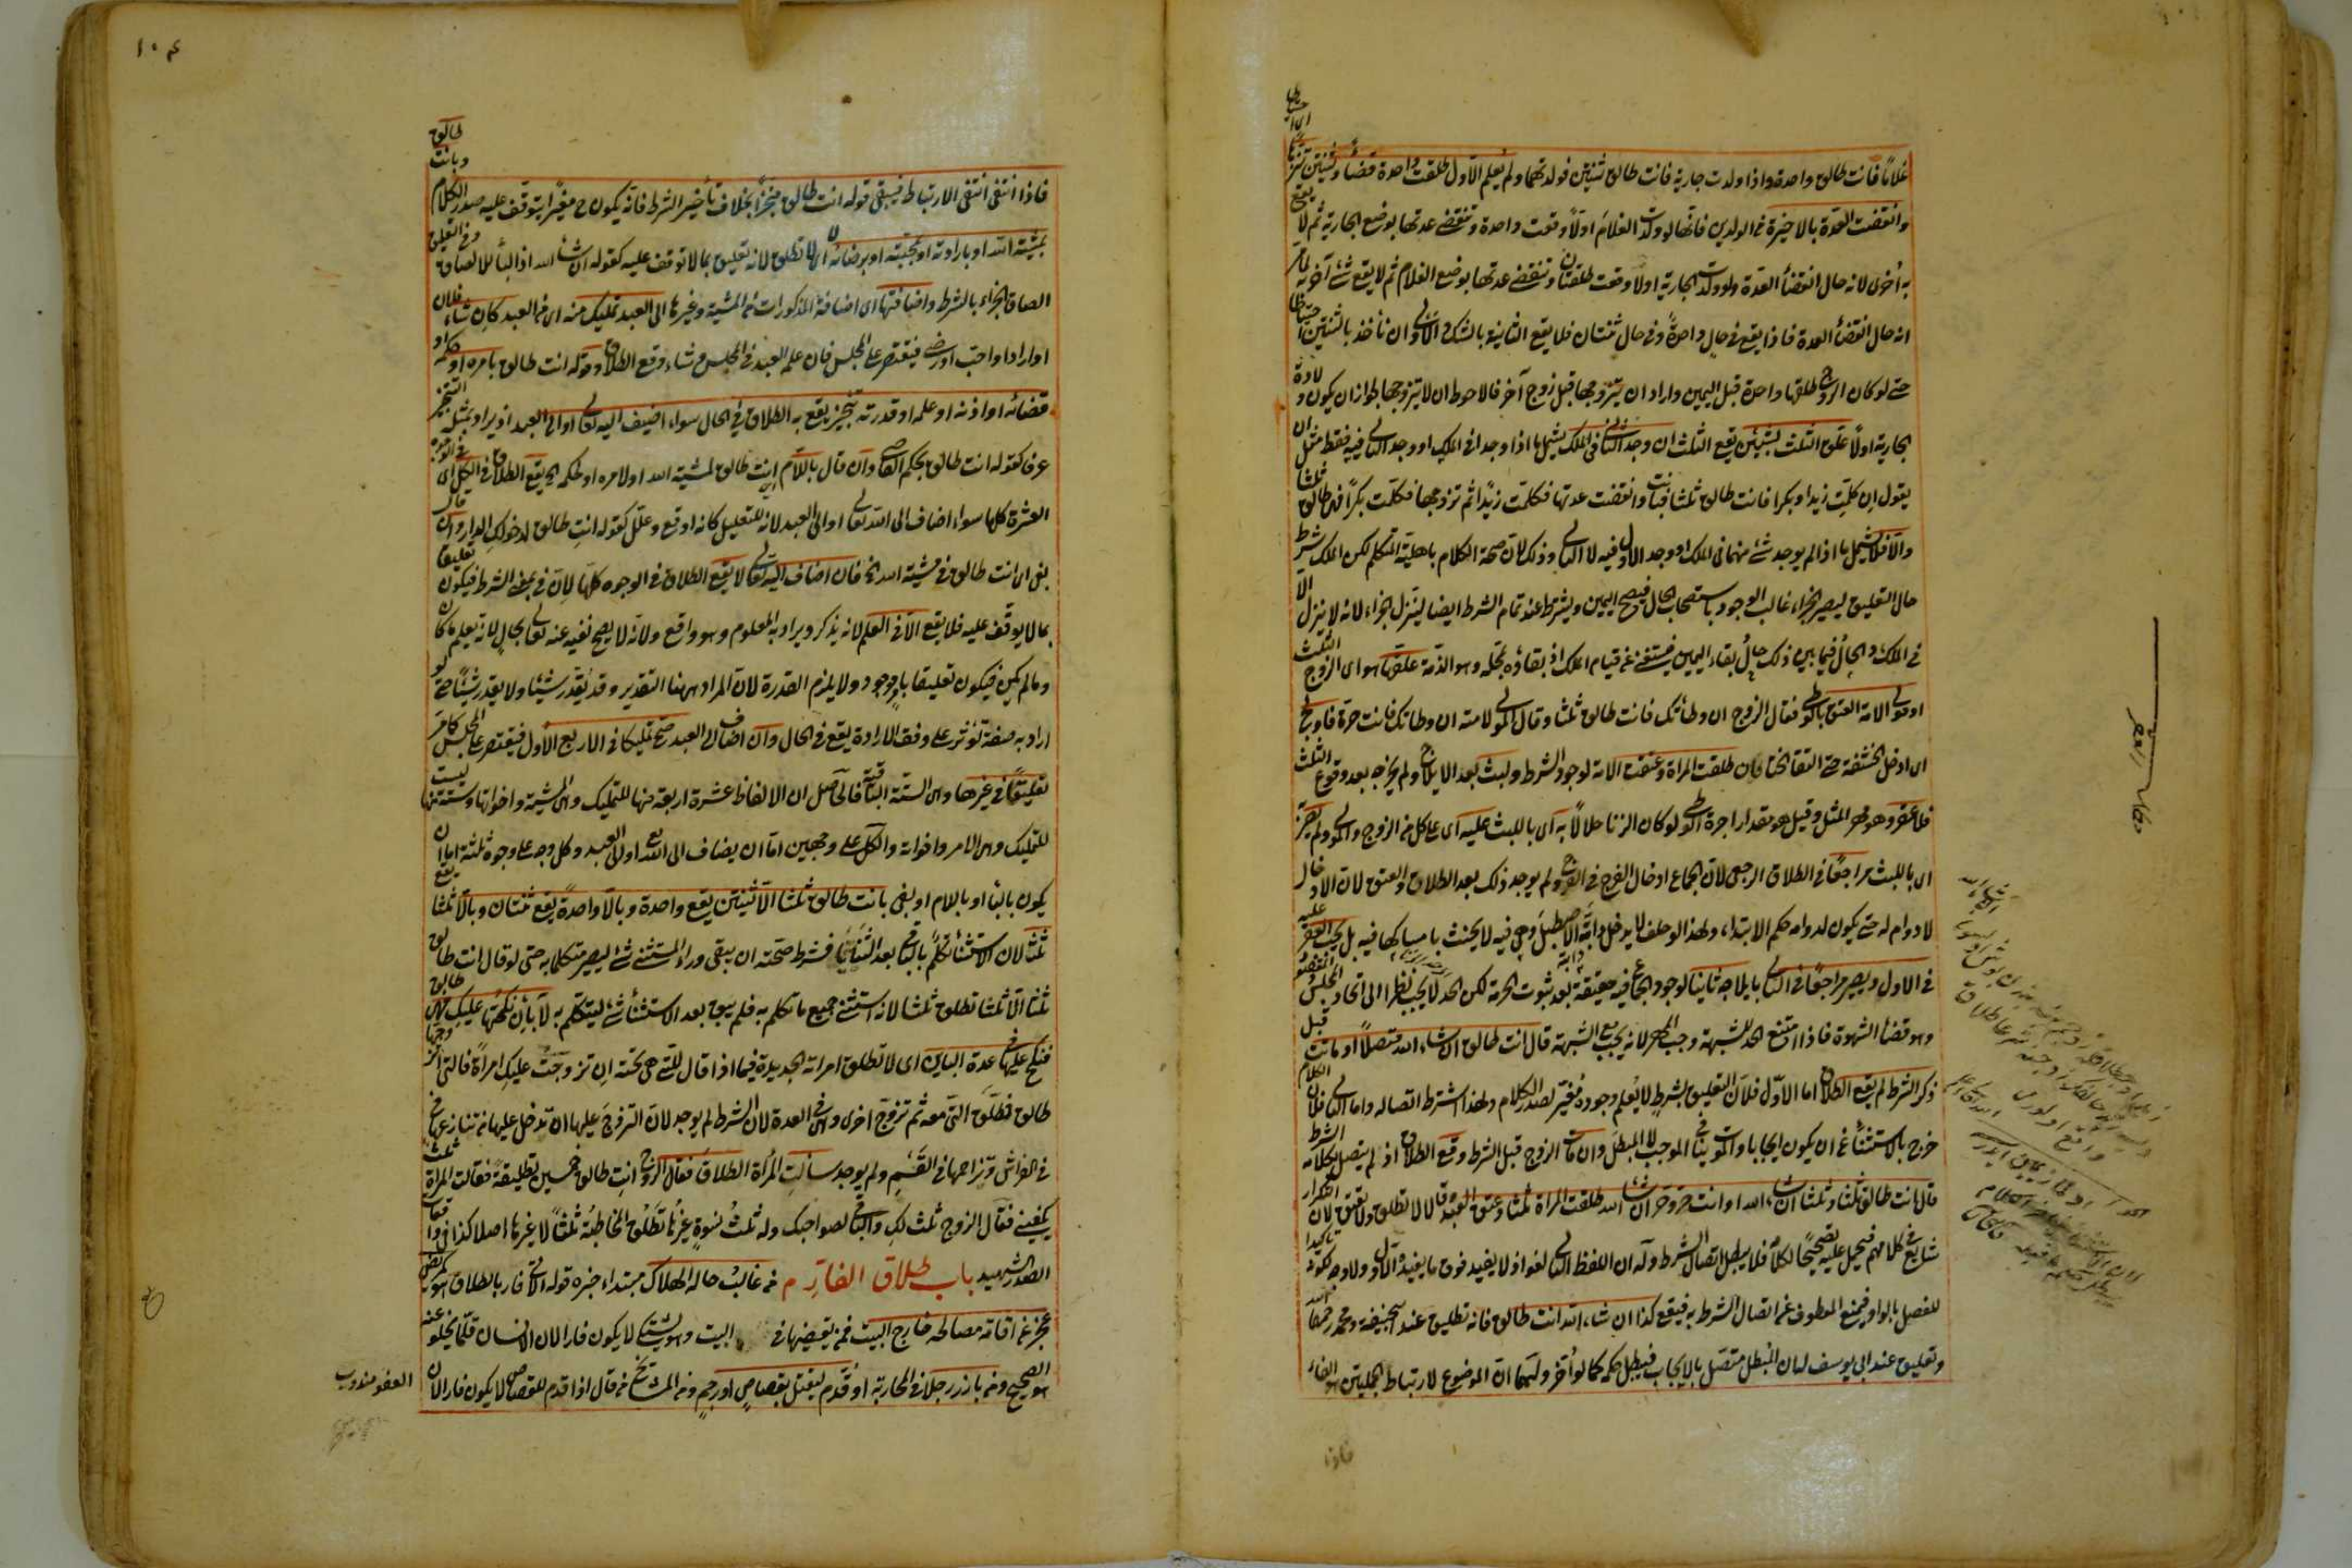 غلامًا فانت طالق واحدة واذا ولدت جارية فانت طالق ثنتين فولدتهما ولم يعلم الاول طلقت واحدة قضاءً وثنتين تنزها
وانقضت العدة بالاخيرة في الولدين فانها لو ولدت الغلام اولًا وقعت واحدة وتنقضي عدتها بوضع الجارية ثم لا يقع
به اُخرى لانه حال انقضاء العدة ولو ولدت الجارية اولا وقعت طلقتان وتنقضي عدتها بوضع الغلام ثم لا يقع شئ آخر به لما مر
انه حال انقضاء العدة فاذا يقع في حال واحدةً وفي حال ثنتان فلا يقع الثانية بالشك والاولى ان ناخذ بالثنتين احتياطا
حتى لو كان الزوج طلقها واحدة قبل اليمين واراد ان يتزوجها قبل زوج آخر فالاحوط ان لا يتزوجها لجواز ان يكون ولادة
الجارية اولًا علق الثلث بشيئين يقع الثلث ان وجد الثاني في الملك يشمل ما اذا وجدا في الملك او وجد الثاني فيه فقط مثل ان
يقول ان كلمت زيدا وبكرا فانت طالق ثلثا فبانت وانقضت عدتها فكلمت زيدًا ثم تزوجها فكلمت بكرًا فهي طالق ثلثا
والا فلا يشمل ما اذا لم يوجد شئ منهما في الملك او وجد الاول فيه لا الثاني وذلك لان صحة الكلام باهلية المتكلم لكن الملك شرط
حال التعليق ليصير الجزاء غالب الوجود باستصحاب الحال فيصح اليمين ويشترط عند تمام الشرط ايضا لينزل الجزاء لانه لا ينزل الا
في الملك والحال فيما بين ذلك حال بقاء اليمين فيستغني عن قيام الملك اذ بقاؤه بمحله وهو الذمة علقها هو اى الزوج الثلث
او مولى الامة العتق بالوطى فقال الزوج ان وطأتك فانت طالق ثلثا وقال المولى لامته ان وطأتك فانت حرة فاولج
اى ادخل الحشفة حتى التقا الختانان طلقت المراة وعتقت الامة لوجود الشرط ولبث بعد الايلاج ولم يخرجه بعد وقوع الثلث
فلا عقر وهو مهر المثل وقيل هو مقدار اجرة الوطى لو كان الزنا حلالًا به اى باللبث عليه اى على كل من الزوج والمولى ولم يصر
اى باللبث مراجعًا في الطلاق الرجعى لان الجماع ادخال الفرج في الفرج ولم يوجد ذلك بعد الطلاق والعتق لان الادخال
لا دوام له حتى يكون لدوامه حكم الابتداء ولهذا لو حلف لا يدخل دابته الاصطبل وهي فيه لا يحنث بامساكها فيه بل يجب العقر عليه
في الاول ويصير مراجعًا في الثاني بايلاجه ثانيا لوجود الجماع فيه حقيقة بعد ثبوت الحرمة لكن الحد لا يجب نظرا الى اتحاد المجلس والمقصود
وهو قضاء الشهوة فاذا امتنع الحد للشبهة وجب المهر لانه يجب مع الشبهة قال انت طالق ان شاء الله متصلًا او ماتت قبل
ذكر الشرط لم يقع الطلاق اما الاول فلان التعليق بشرط لا يُعلم وجوده مُغيّر لصدر الكلام ولهذا اشترط اتصاله واما الثاني فلان الكلام
خرج بالاستثناء عن ان يكون ايجابا والموت ينافي الموجب لا المبطل وان مات الزوج قبل الشرط وقع الطلاق اذ لم يتصل بكلامه الشرط
قال انت طالق ثلثا وثلثا ان شاء الله او انت حر وحر ان شاء الله طلقت المراة ثلثا وعتق العبد وقالا لا تطلق ولا تعتق لان التكرار
شايع في كلامهم فيحمل عليه تصحيحًا لكلامه فلا يبطل اتصال الشرط وله ان اللفظ الثاني لغو اذ لا يفيد فوق ما يفيده الاول ولا وجه لكونه تاكيدا
للفصل بالواو فيمنع المعطوف عن اتصال الشرط به فيقع كذا ان شاء الله انت طالق فانه تطليق عند ابي حنيفة ومحمد رحمهما الله
وتعليق عند ابى يوسف له ان المبطل متصل بالايجاب فيبطل حكمه كما لو اُخر ولهما ان الموضوع لارتباط الجملتين هو الفاء
فاذا
١٠٤
فاذا انتفى انتفى الارتباط فيبقى قوله انت طالق منجزًا بخلاف تأخير الشرط فانه يكون ح مغيرًا يتوقف عليه صدر الكلام وبانت طالق
بمشية الله او بارادته او بمحبته او برضائه اى لا تطلق لانه تعليق بما لا توقف عليه كقوله ان شاء الله اذ الباء للالصاق وفي التعليق
الصاق الجزاء بالشرط واضافتها اى اضافة المذكورات من المشية وغيرها الى العبد تمليك منه اى من العبد كان شاء فلان
او اراد او احب او رضي فيقتصر على المجلس فان علم العبد في المجلس وشاء وقع الطلاق وقوله انت طالق بامره او حكمه او
قضائه او اذنه او علمه او قدرته تنجيز يقع به الطلاق في الحال سواء اضيف اليه تعالى او الى العبد اذ يراد بمثله التنجيز
عرفا كقوله انت طالق بحكم القاضي وان قال باللام انت طالق لمشية الله او لامره او لحكمه الخ يقع الطلاق في الكل اى في الوجوه
العشرة كلها سواء اضاف الى الله تعالى او الى العبد لانه للتعليل كانه اوقع وعلل كقوله انت طالق لدخولك الدار وان قال
بفي اى انت طالق في مشية الله الخ فان اضاف اليه تعالى لا يقع الطلاق في الوجوه كلها لان في بمعنى الشرط فيكون تعليقا
بما لا يوقف عليه فلا يقع الا في العلم لانه يذكر ويراد به المعلوم وهو واقع ولانه لا يصح نفيه عنه تعالى بحال لانه يعلم ما كان
وما لم يكن فيكون تعليقا بامر موجود ولا يلزم القدرة لان المراد ههنا التقدير وقد يقدر شيئا ولا يقدر شيئًا حتى لو
اراد به صفة تؤثر على وفق الارادة يقع في الحال وان اضاف الى العبد صح تمليكا في الاربع الأول فيقتصر على المجلس كما مر
تعليقًا في غيرها وهي الستة الباقية فالحاصل ان الالفاظ عشرة اربعة منها للتمليك وهي المشية واخواتها وستة منها ليست
للتمليك وهي الامر واخواته والكل على وجهين اما ان يضاف الى الله تع او الى العبد وكل وجه على وجوه ثلثة اما ان
يكون بالباء او باللام او بفي بانت طالق ثلثا الا ثنتين يقع واحدة وبالا واحدة يقع ثنتان وبالا ثلثا يقع
ثلث لان الاستثناء تكلم بالباقي بعد الثنيا فشرط صحته ان يبقى وراء المستثنى شئ ليصير متكلما به حتى لو قال انت طالق
ثلثا الا ثلثا تطلق ثلثا لانه استثنى جميع ما تكلم به فلم يبق بعد الاستثناء شئ ليتكلم به لا بان نكحتها عليك فهي طالق
فنكح عليها في عدة الباين اى لا تطلق امراته الجديدة فيما اذا قال للتي هي تحته ان تزوجت عليك امراةً فالتي اتزوجها
طالق فطلق التي معه ثم تزوج اخرى وهي في العدة لان الشرط لم يوجد لان التزوج عليها ان تدخل عليها من تنازعها
في الفراش وتزاحمها في القسم ولم يوجد سألت المرأة الطلاق فقال الزوج انت طالق خمسين تطليقة فقالت المراة ثلث
يكفيني فقال الزوج ثلث لك والباقى لصواحبك وله ثلث نسوة غيرها تطلق المخاطبة ثلثًا لا غيرها اصلا كذا في واقعات
الصدر الشهيد باب طلاق الفار من غالب حاله الهلاك مبتداء خبره قوله الآتي فار بالطلاق كمريض
عجز عن اقامة مصالحه خارج البيت فمن يقضيها في البيت وهو يشتكي لا يكون فارا لان الانسان قلما يخلو عنه
هو الصحيح ومن بارز رجلا في المحاربة او قُدم ليقتل بقصاص او رجم ومن المشايخ من قال اذا قدم للقصاص لا يكون فارا لان
العفو مندوب